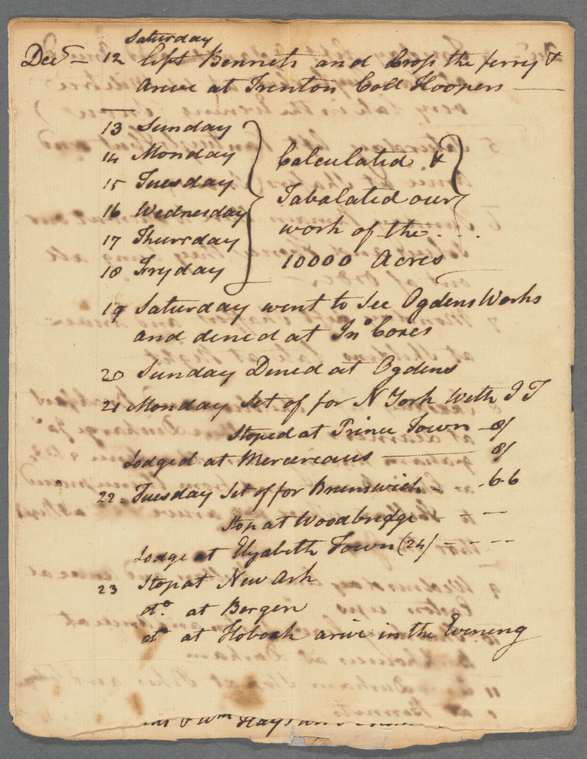 Saturday
Decr - 12 left Bennets and Cross the ferry &
arive at Trenton Coll Hoopers
13 Sunday
14 Monday
15 Tuesday
16 Wednesday
17 Thursday
18 Fryday
Calculated &
Tabalated our
work of the
10000 Acres
19 Saturday went to See Ogdens Works
and dined at Jno Coxes
20 Sunday Dined at Ogdens
21 Monday Set of for N York With J T
Stoped at Prince Town 8/
Lodged at Mercereaus 8/
22 Tuesday Set of for Brunswick 6-6
Stop at Woodbridge
Lodge at Elyabeth Town (24/
23 Stop at New Ark
do at Bergen
do at Hobook arive in the Evening
& Wm Hays